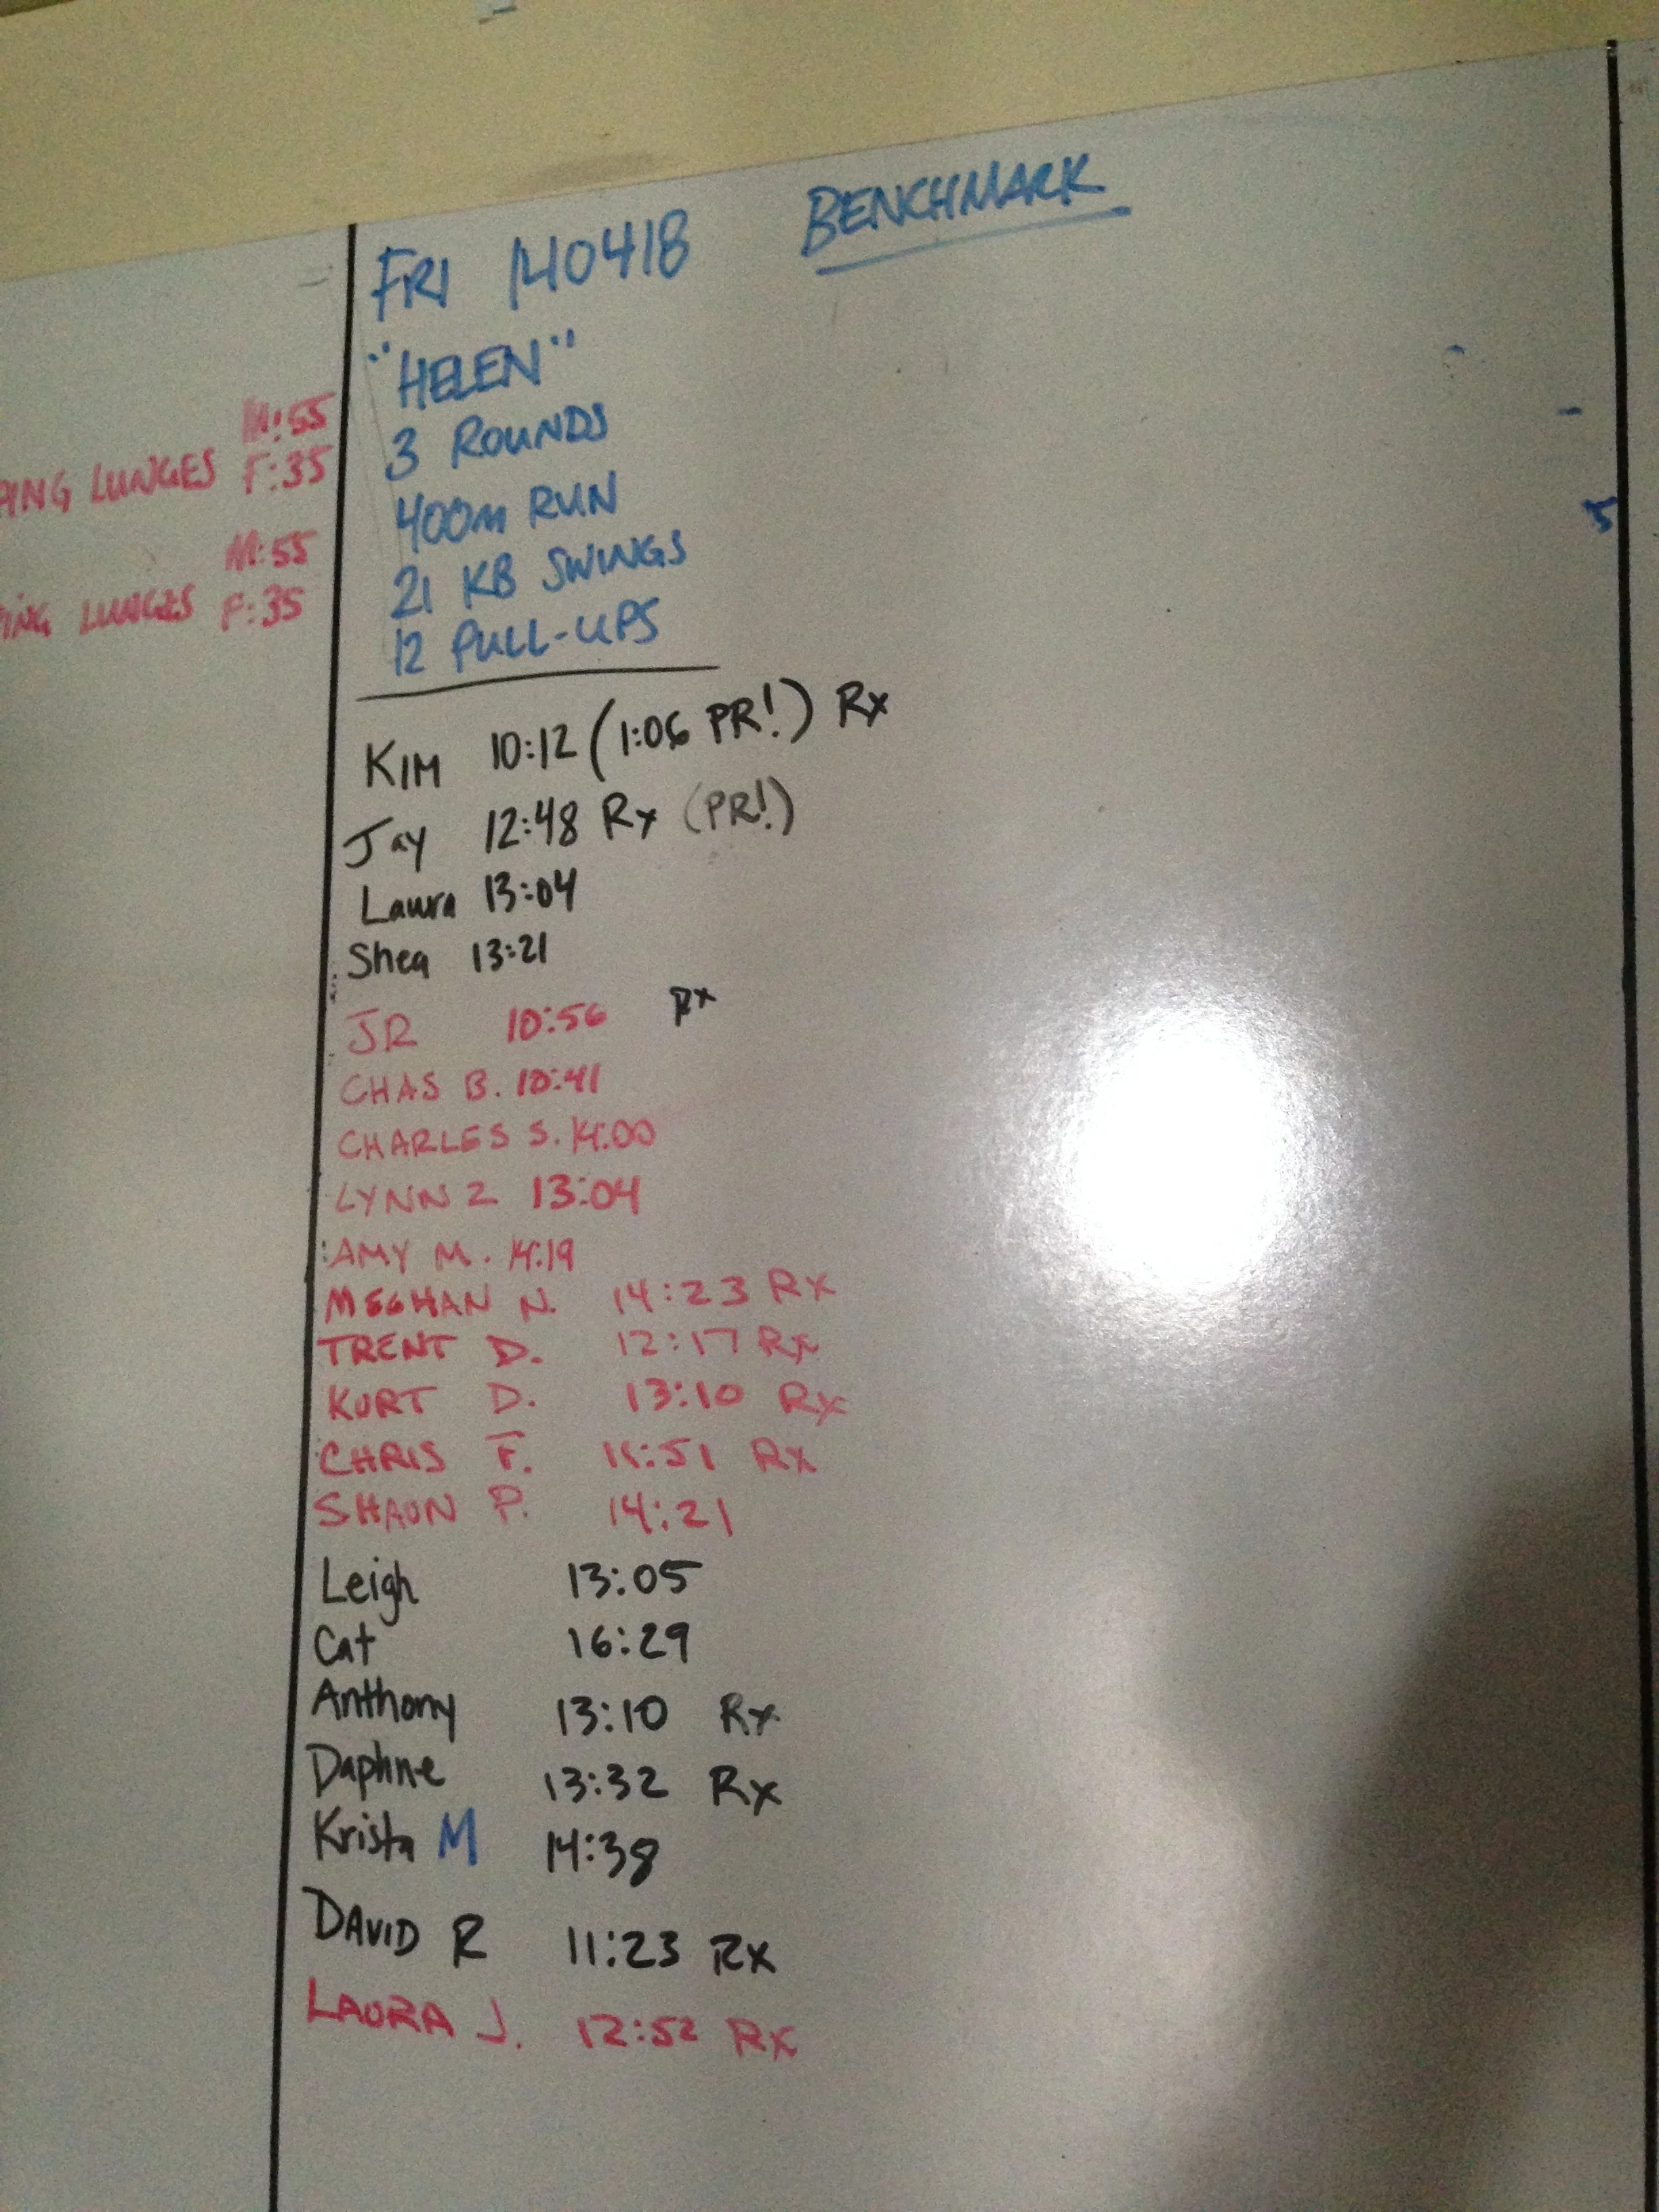 FRI 140418 BENCHMARK
"HELEN"
3 ROUNDS
400m RUN
21 KB SWINGS
12 PULL-UPS
M:55
PING LUNGES F:35
M:55
PING LUNGES F:35
5
KIM 10:12 (1:06 PR!) Rx
Jay 12:48 Rx (PR!)
Laura 13:04
Shea 13:21
JR 10:56 Rx
CHAS B. 10:41
CHARLES S. 14:00
LYNN Z 13:04
AMY M. 14:19
MEGHAN N. 14:23 Rx
TRENT D. 12:17 Rx
KURT D. 13:10 Rx
CHRIS F. 11:51 Rx
SHAUN P. 14:21
Leigh 13:05
Cat 16:29
Anthony 13:10 Rx
Daphne 13:32 Rx
Krista M 14:38
DAVID R 11:23 Rx
LAURA J. 12:52 Rx